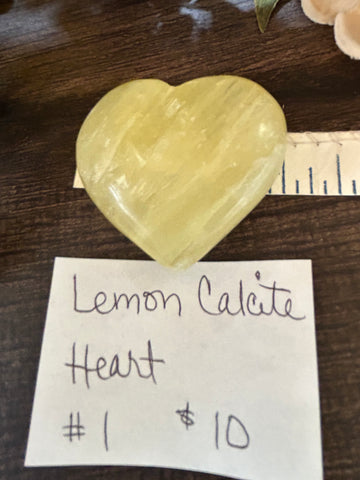 Lemon Calcite
Heart
#1 $10